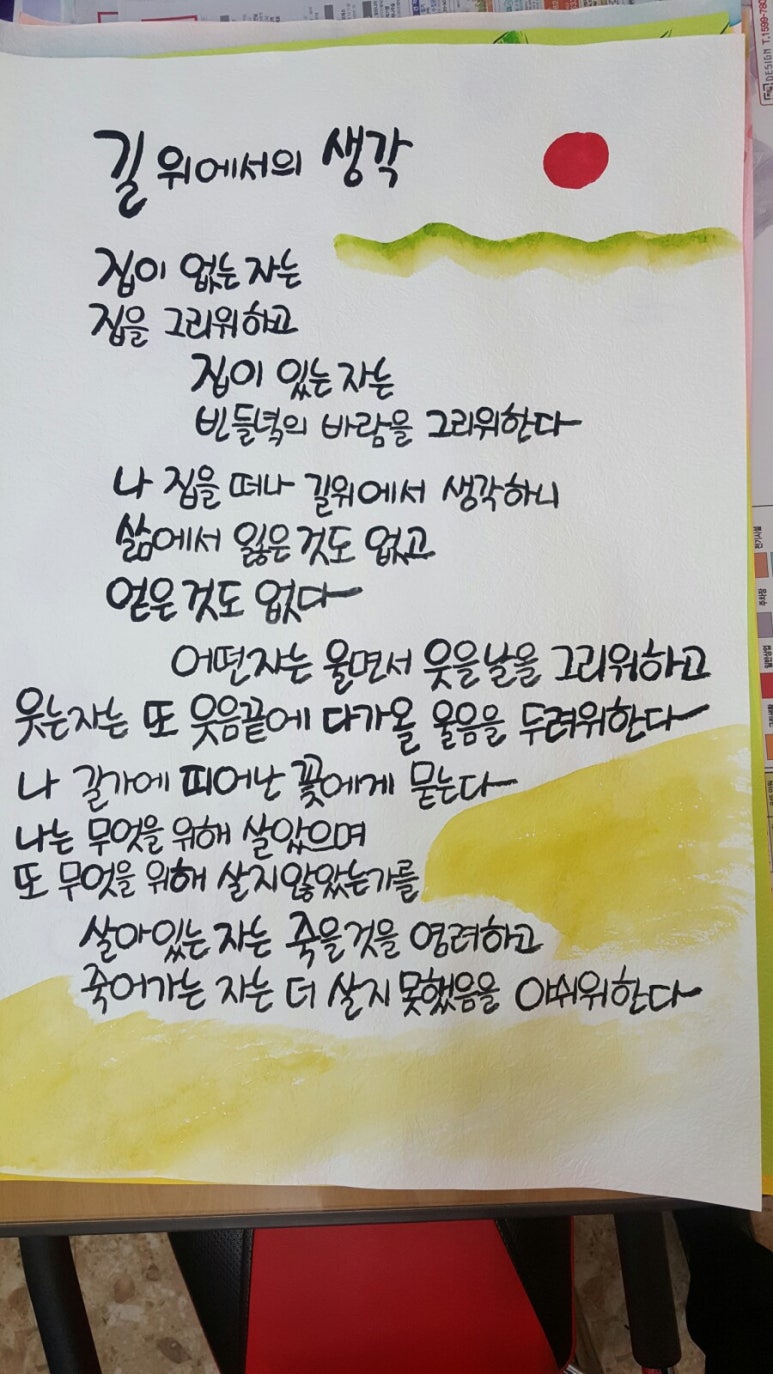 길 위에서의 생각
집이 없는 자는
집을 그리워하고
집이 있는 자는
빈 들녘의 바람을 그리워한다
나 집을 떠나 길위에서 생각하니
삶에서 잃은 것도 없고
얻은 것도 없다
어떤자는 울면서 웃을날을 그리워하고
웃는자는 또 웃음끝에 다가올 울음을 두려워한다
나 길가에 피어난 꽃에게 묻는다
나는 무엇을 위해 살았으며
또 무엇을 위해 살지않았는가를
살아있는 자는 죽을것을 염려하고
죽어가는 자는 더 살지 못했음을 아쉬워한다
DESIGN T.1599-780
주차장
일반상업